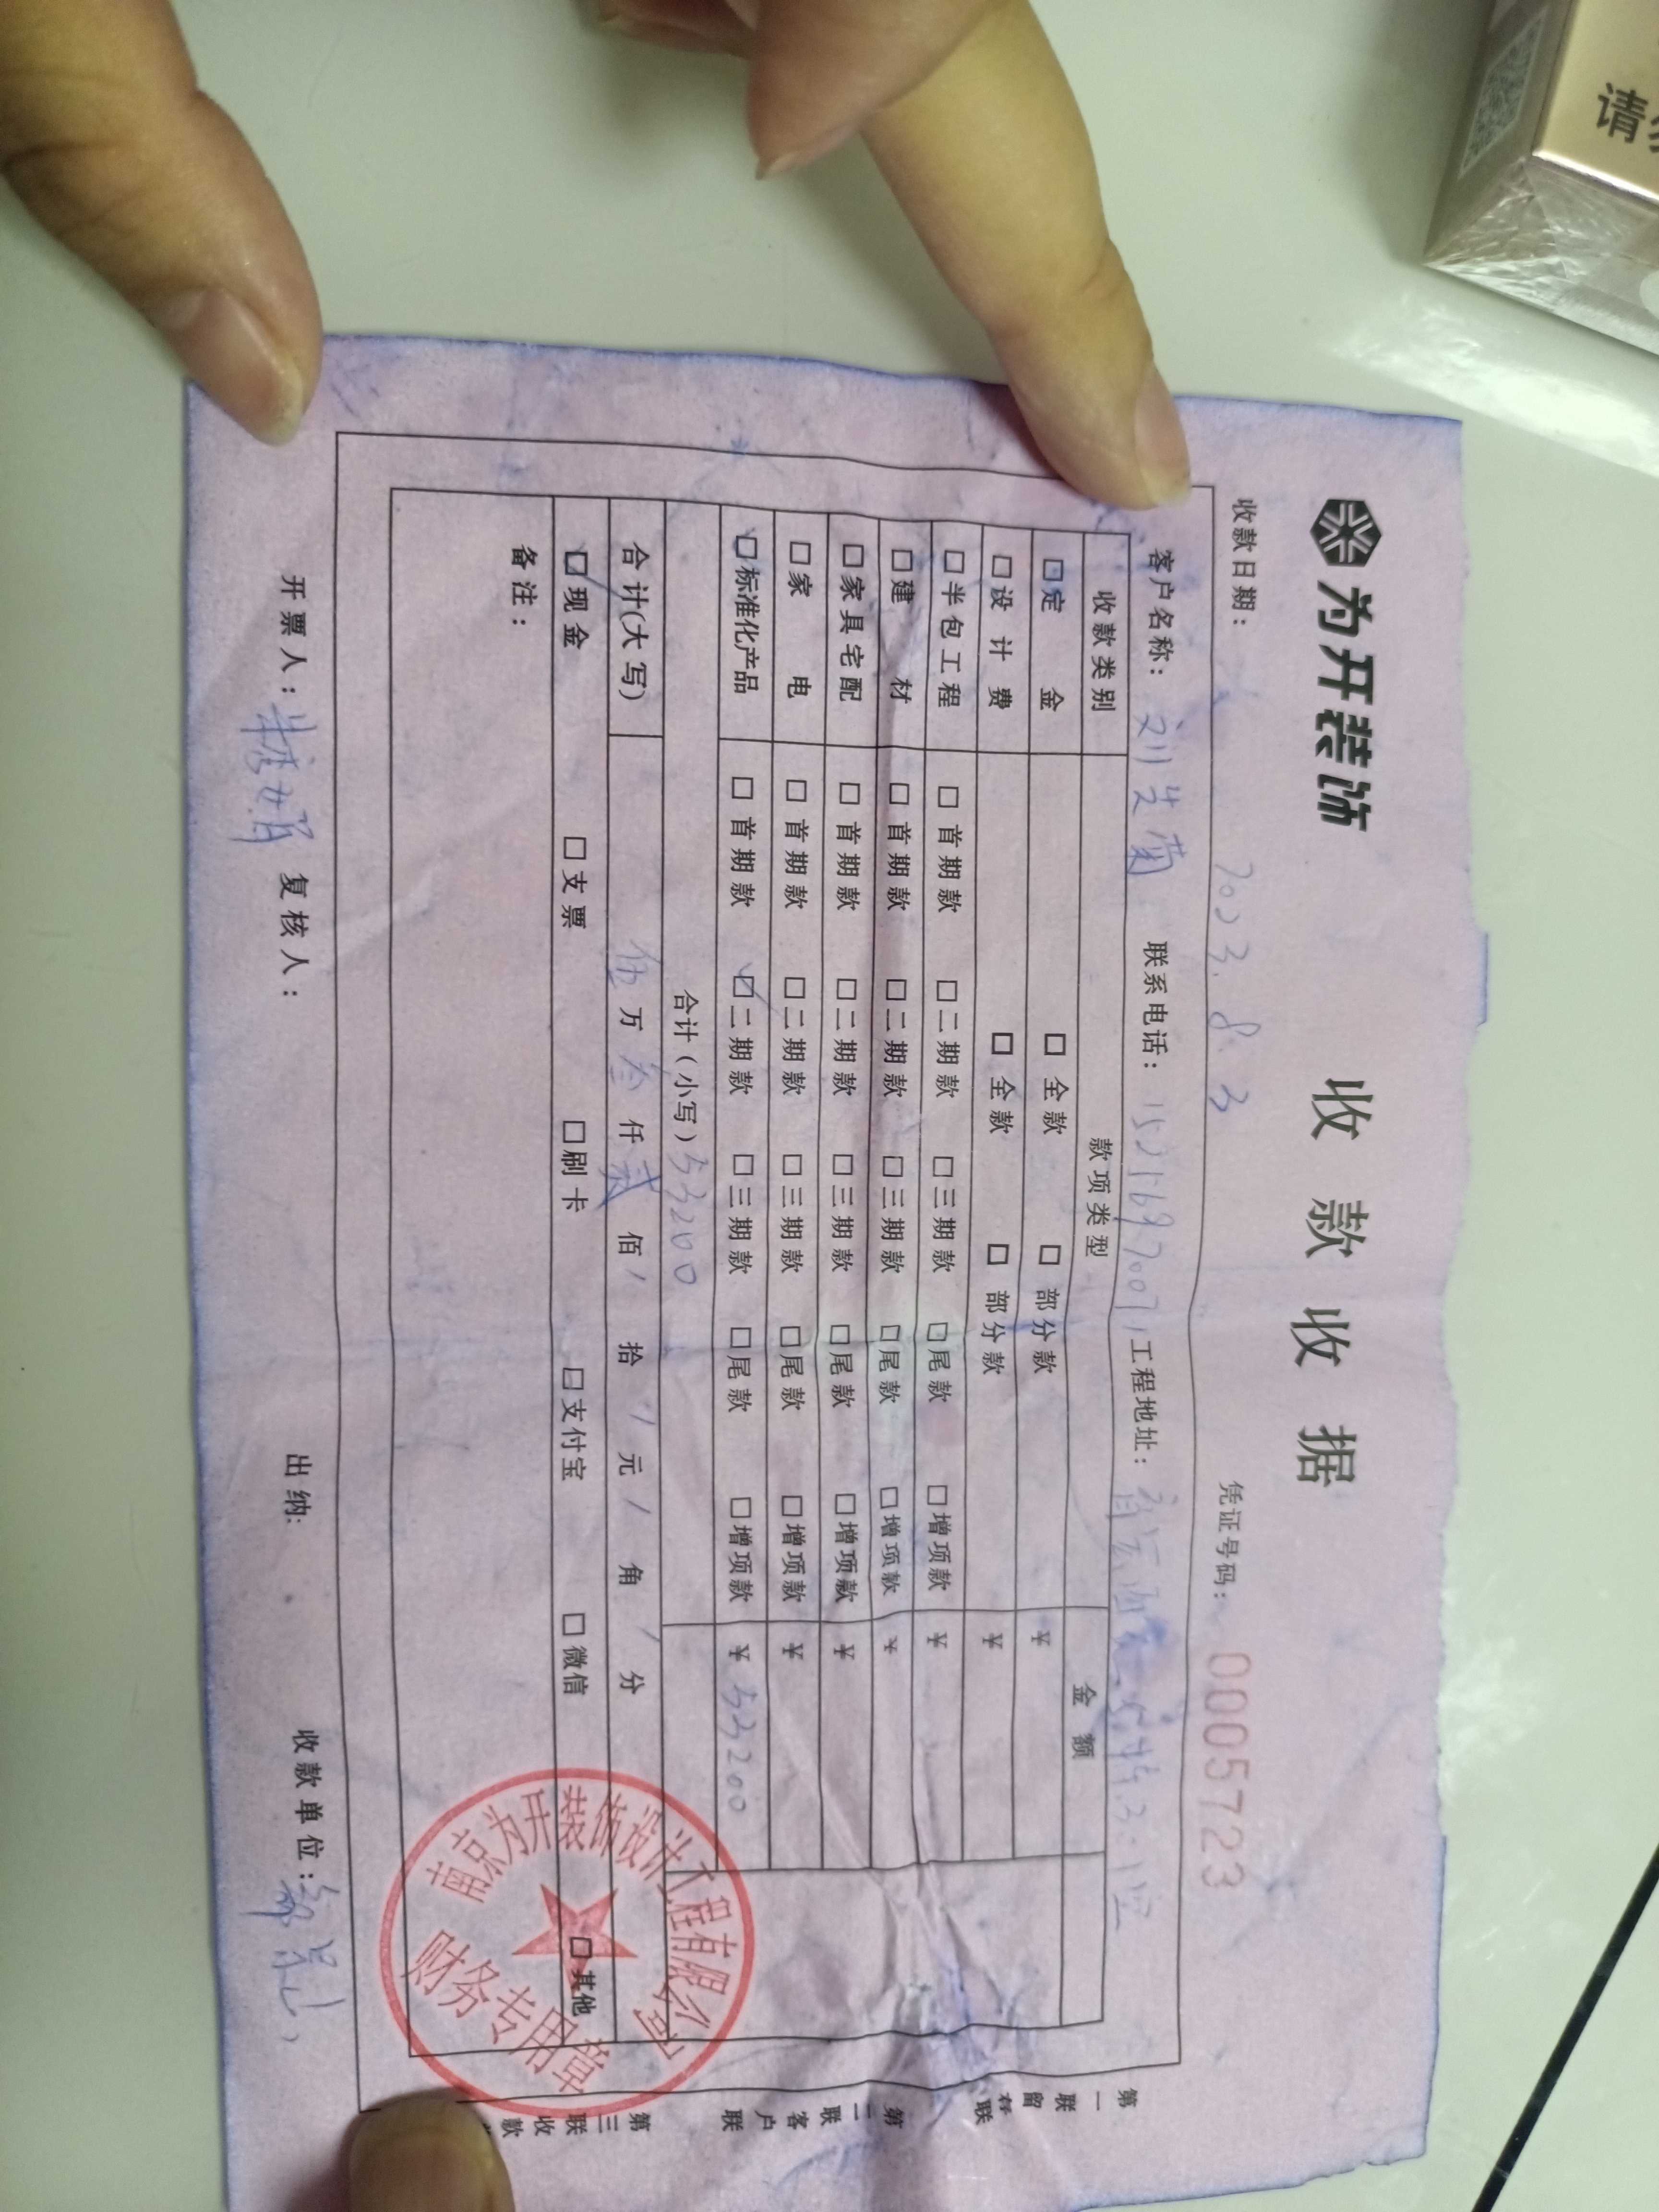 为开装饰
收款收据
收款日期： 2023.8.3 凭证号码： 0005723
客户名称： 刘 菊 联系电话： 工程地址：
收款类别 款项类型 金额
□定金 □全款 □部分款 ¥
□设计费 □全款 □部分款 ¥
□半包工程 □首期款 □二期款 □三期款 □尾款 □增项款 ¥
□建材 □首期款 □二期款 □三期款 □尾款 □增项款 ¥
□家具宅配 □首期款 □二期款 □三期款 □尾款 □增项款 ¥
□家电 □首期款 □二期款 □三期款 □尾款 □增项款 ¥
☑标准化产品 □首期款 ☑二期款 □三期款 □尾款 □增项款 ¥ 53200
合计（小写）53200
合计(大写) 伍万叁仟贰佰/拾/元/角/分
☑现金 □支票 □刷卡 □支付宝 □微信 □其他
备注：
南京为开装饰设计工程有限公司
财务专用章
开票人： 复核人： 出纳: 收款单位：
第一联留存联
第二联客户联
第三联收款
请